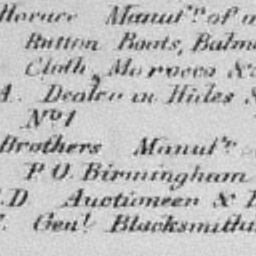 Horace Manufr. of
Button Boots, Balm
Cloth, Morocco &
A. Dealer in Hides &
No 1
Brothers Manufr.
P.O. Birmingham
.D Auctioneer & 
Genl. Blacksmithi